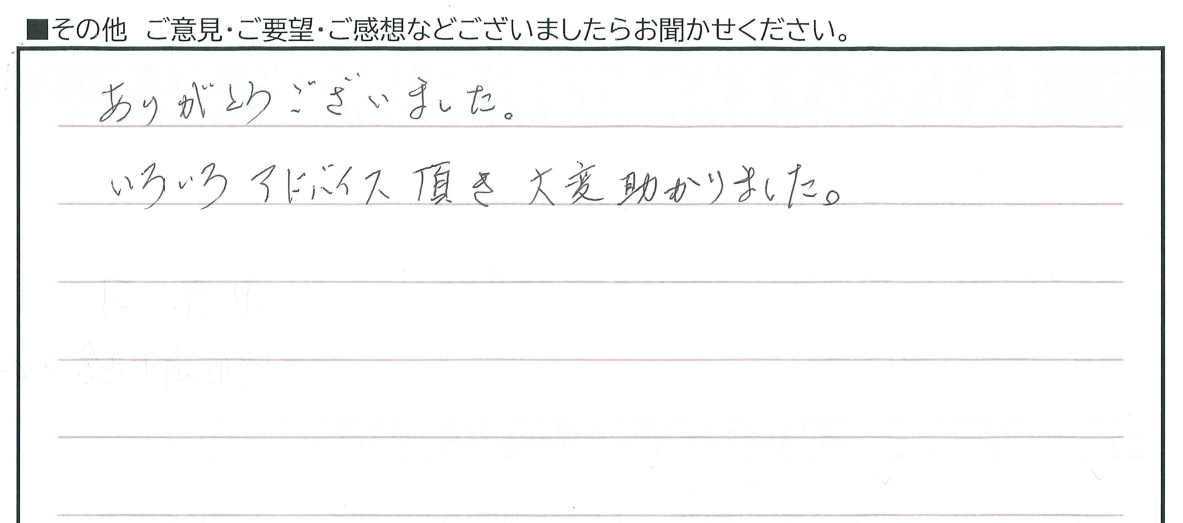 ■その他 ご意見・ご要望・ご感想などございましたらお聞かせください。
ありがとうございました。
いろいろアドバイス頂き大変助かりました。